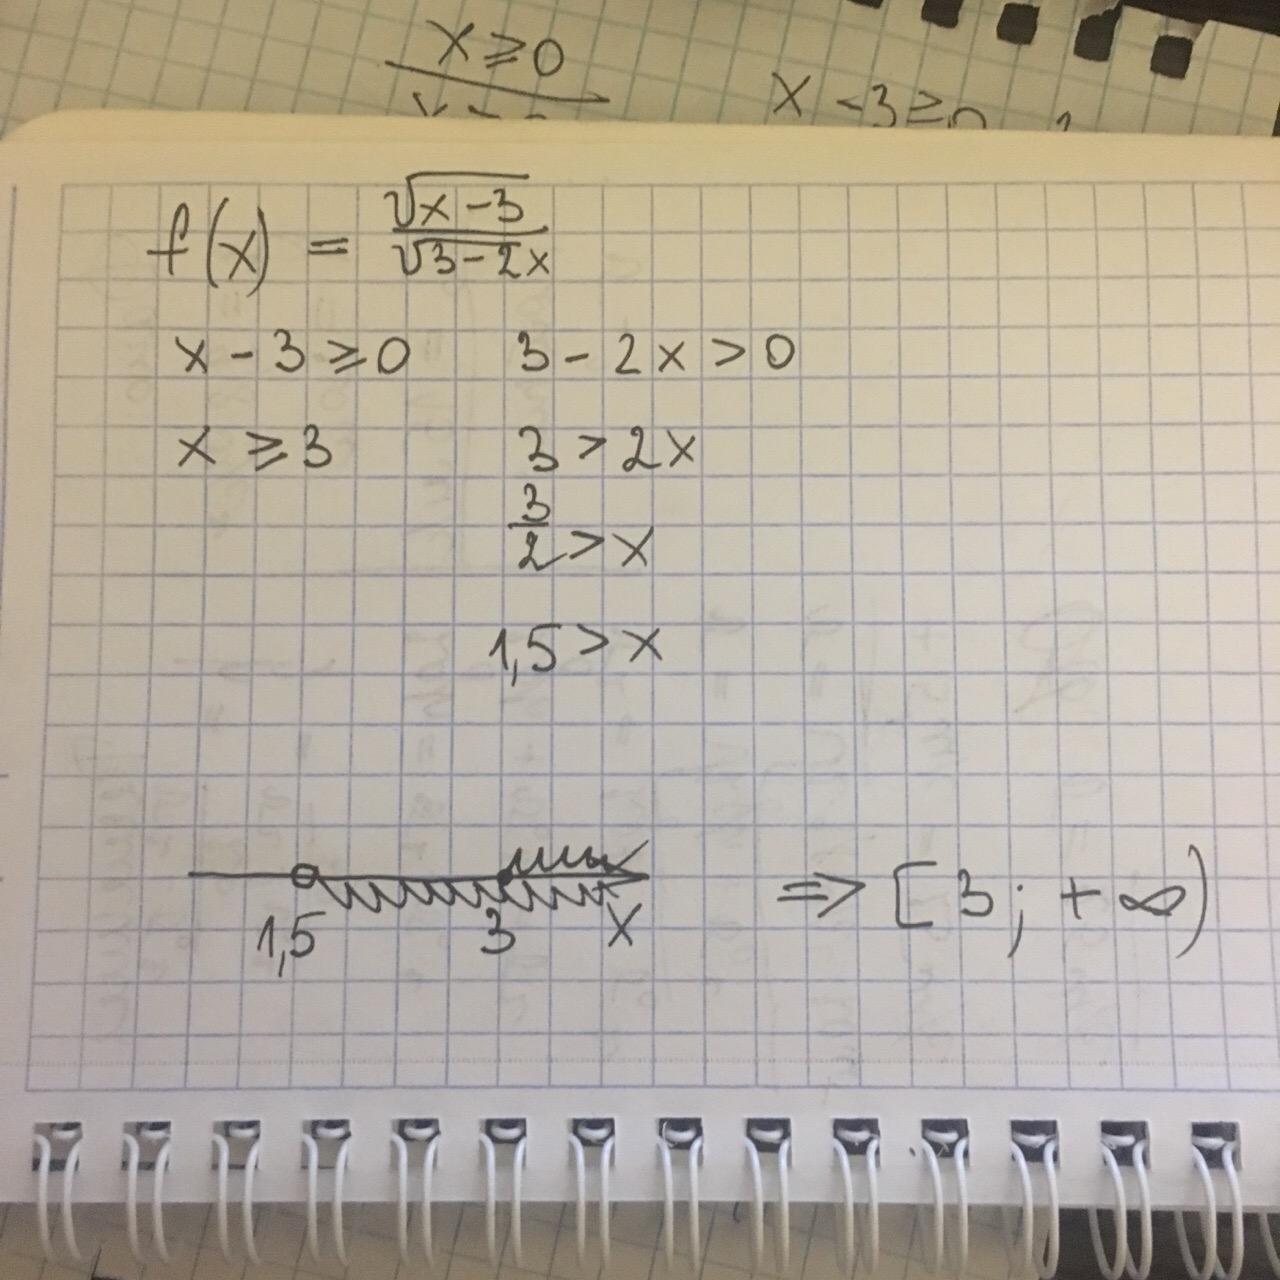 x ≥ 0
x - 3 ≥ 0
f(x) = √(x - 3) / √(3 - 2x)
x - 3 ≥ 0    3 - 2x > 0
x ≥ 3    3 > 2x
3/2 > x
1,5 > x
1,5    3    x    => [3; +∞)